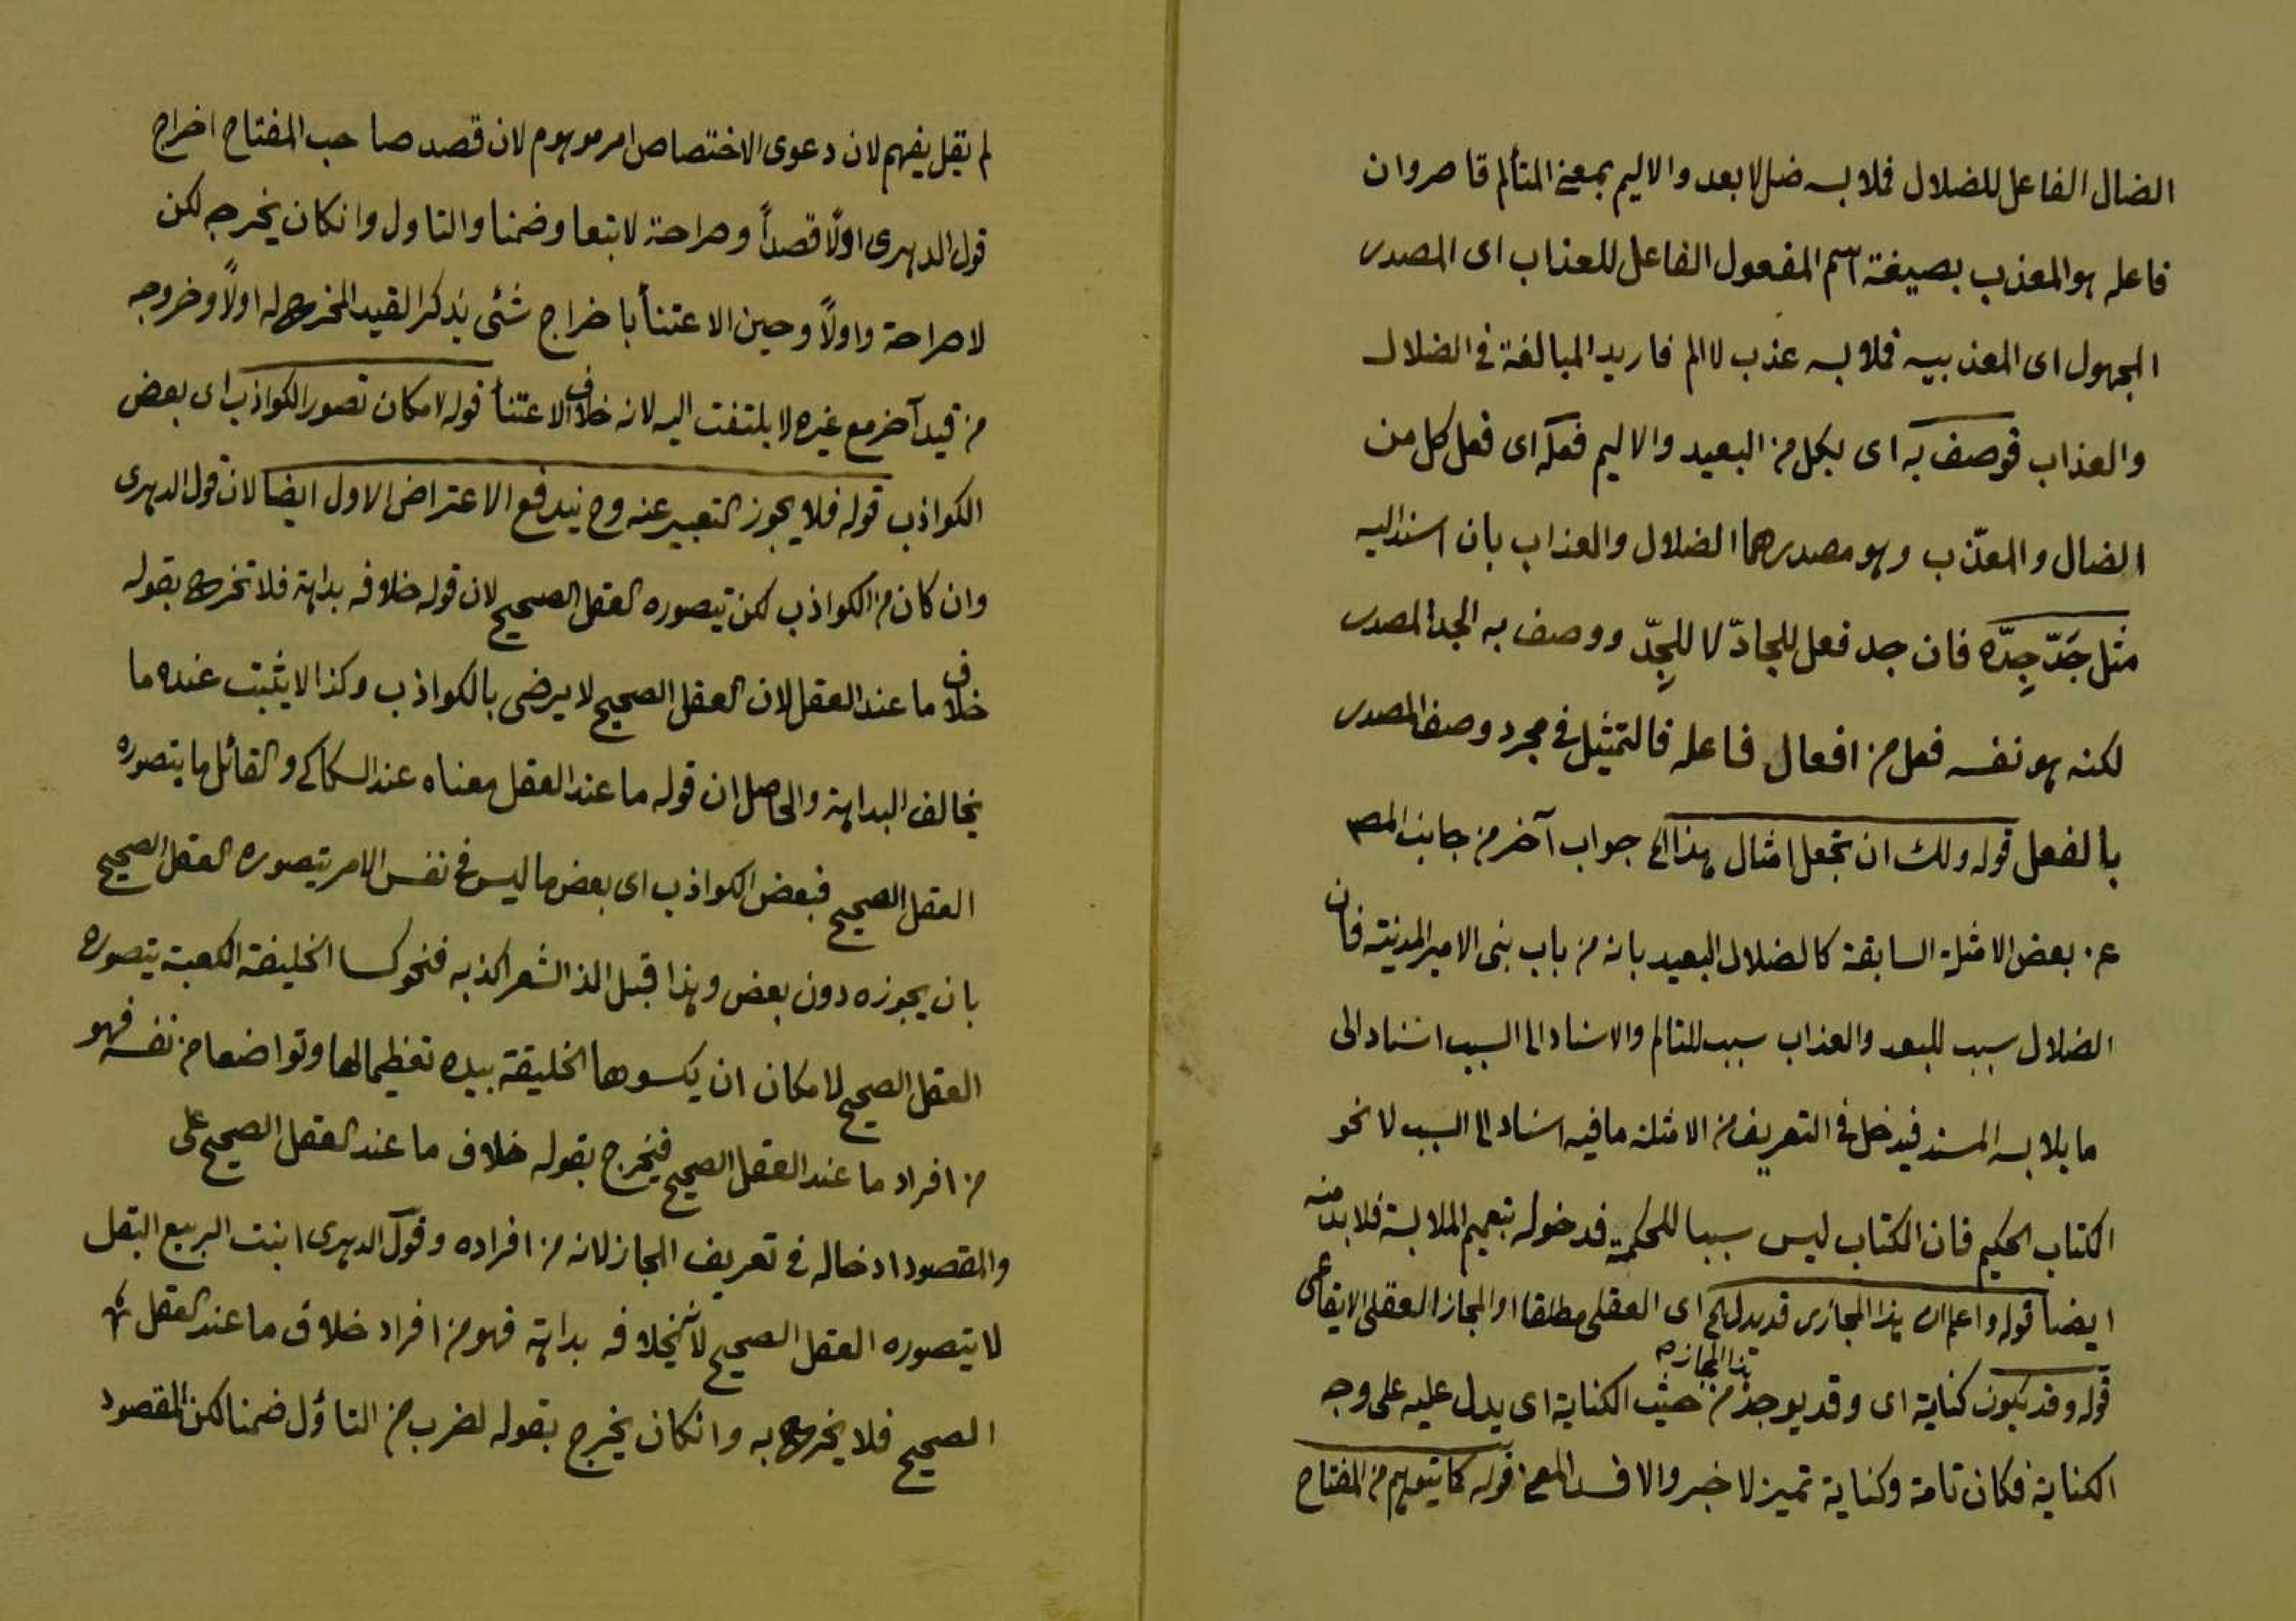 الضال الفاعل للضلال فملابسه ضل لا بعد والاليم بمعنى المتألم قاصر وان
فاعله هو المعذب بصيغة اسم المفعول الفاعل للعذاب اى المصدر
المجهول اى المعذبيه فملابسه عذب لا الم فاريد المبالغة فى الضلال
والعذاب فوصف به اى بكل من البعيد والاليم فعله اى فعل كل من
الضال والمعذّب وهو مصدرهما الضلال والعذاب بان اسند اليه
مثل جَدّ جِدّه فان جد فعل للجادّ لا للجِدّ ووصف به الجد المصدر
لكنه هو نفسه فعل من افعال فاعله فالتمثيل فى مجرد وصف المصدر
بالفعل قوله ولك ان تجعل امثال هذا الخ جواب آخر من جانب المص
عن بعض الامثلة السابقة كالضلال البعيد بانه من باب بنى الامير المدينة فان
الضلال سبب للبعد والعذاب سبب للتالم والاسناد الى السبب اسناد الى
ما يلابسه المسند فيدخل فى التعريف من الامثلة ما فيه اسناد الى السبب لا نحو
الكتاب الحكيم فان الكتاب ليس سببا للحكمة فدخوله بتعميم الملابسة فلا بد منه
ايضا قوله واعلم ان هذا المجاز قد يدل الخ اى العقلى مطلقا او المجاز العقلى الايقاعى
قوله وقد يكون كناية اى وقد يوجد هذا المجاز من حيث الكناية اى يدل عليه على وجه
الكناية فكان تامة وكناية تميز لا خبر والا فسد المعنى قوله كما يتوهم من المفتاح
لم يقل يفهم لان دعوى الاختصاص امر موهوم لان قصد صاحب المفتاح اخراج
قول الدهرى اولاً قصداً وصراحة لا تبعا وضمنا والتاول وانكان يخرجه لكن
لا صراحة واولاً وحين الاعتنأ باخراج شئى يذكر القيد المخرج له اولاً وخروجه
من قيد آخر مع غيره لا يلتفت اليه لانه خلاف الاعتنأ قوله لامكان تصور الكواذب اى بعض
الكواذب قوله فلا يجوز التعبير عنه وح يندفع الاعتراض الاول ايضا لان قول الدهرى
وان كان من الكواذب لكن يتصوره العقل الصحيح لان قوله خلافه بداهة فلا تخرج بقوله
خلاف ما عند العقل لان العقل الصحيح لا يرضى بالكواذب وكذا لا يثبت عنده ما
يخالف البداهة والحاصل ان قوله ما عند العقل معناه عند السكاكى والقائل ما يتصوره
العقل الصحيح فبعض الكواذب اى بعض ما ليس فى نفس الامر يتصوره العقل الصحيح
بان يجوزه دون بعض وهذا قبل الذ الشعر اكذبه فنحو كسا الخليفة الكعبة يتصوره
العقل الصحيح لامكان ان يكسوها الخليفة بيده تعظيما لها وتواضعا من نفسه فهو
من افراد ما عند العقل الصحيح فيخرج بقوله خلاف ما عند العقل الصحيح على
والمقصود ادخاله فى تعريف المجاز لانه من افراده وقول الدهرى انبت الربيع البقل
لا يتصوره العقل الصحيح لانخلافه بداهة فهو من افراد خلاف ما عند العقل
الصحيح فلا يخرج به وانكان يخرج بقوله لضرب من التاؤل ضمنا لكن المقصود